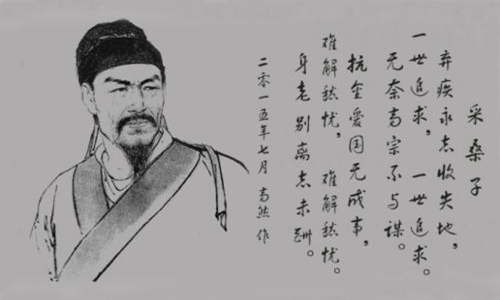 采桑子
弃疾永志收失地，
一世追求，一世追求。
无奈高宗不与谋。
抗金爱国无成事，
难解愁忧，难解愁忧。
身老别离志未酬。
二零一五年七月 高然 作